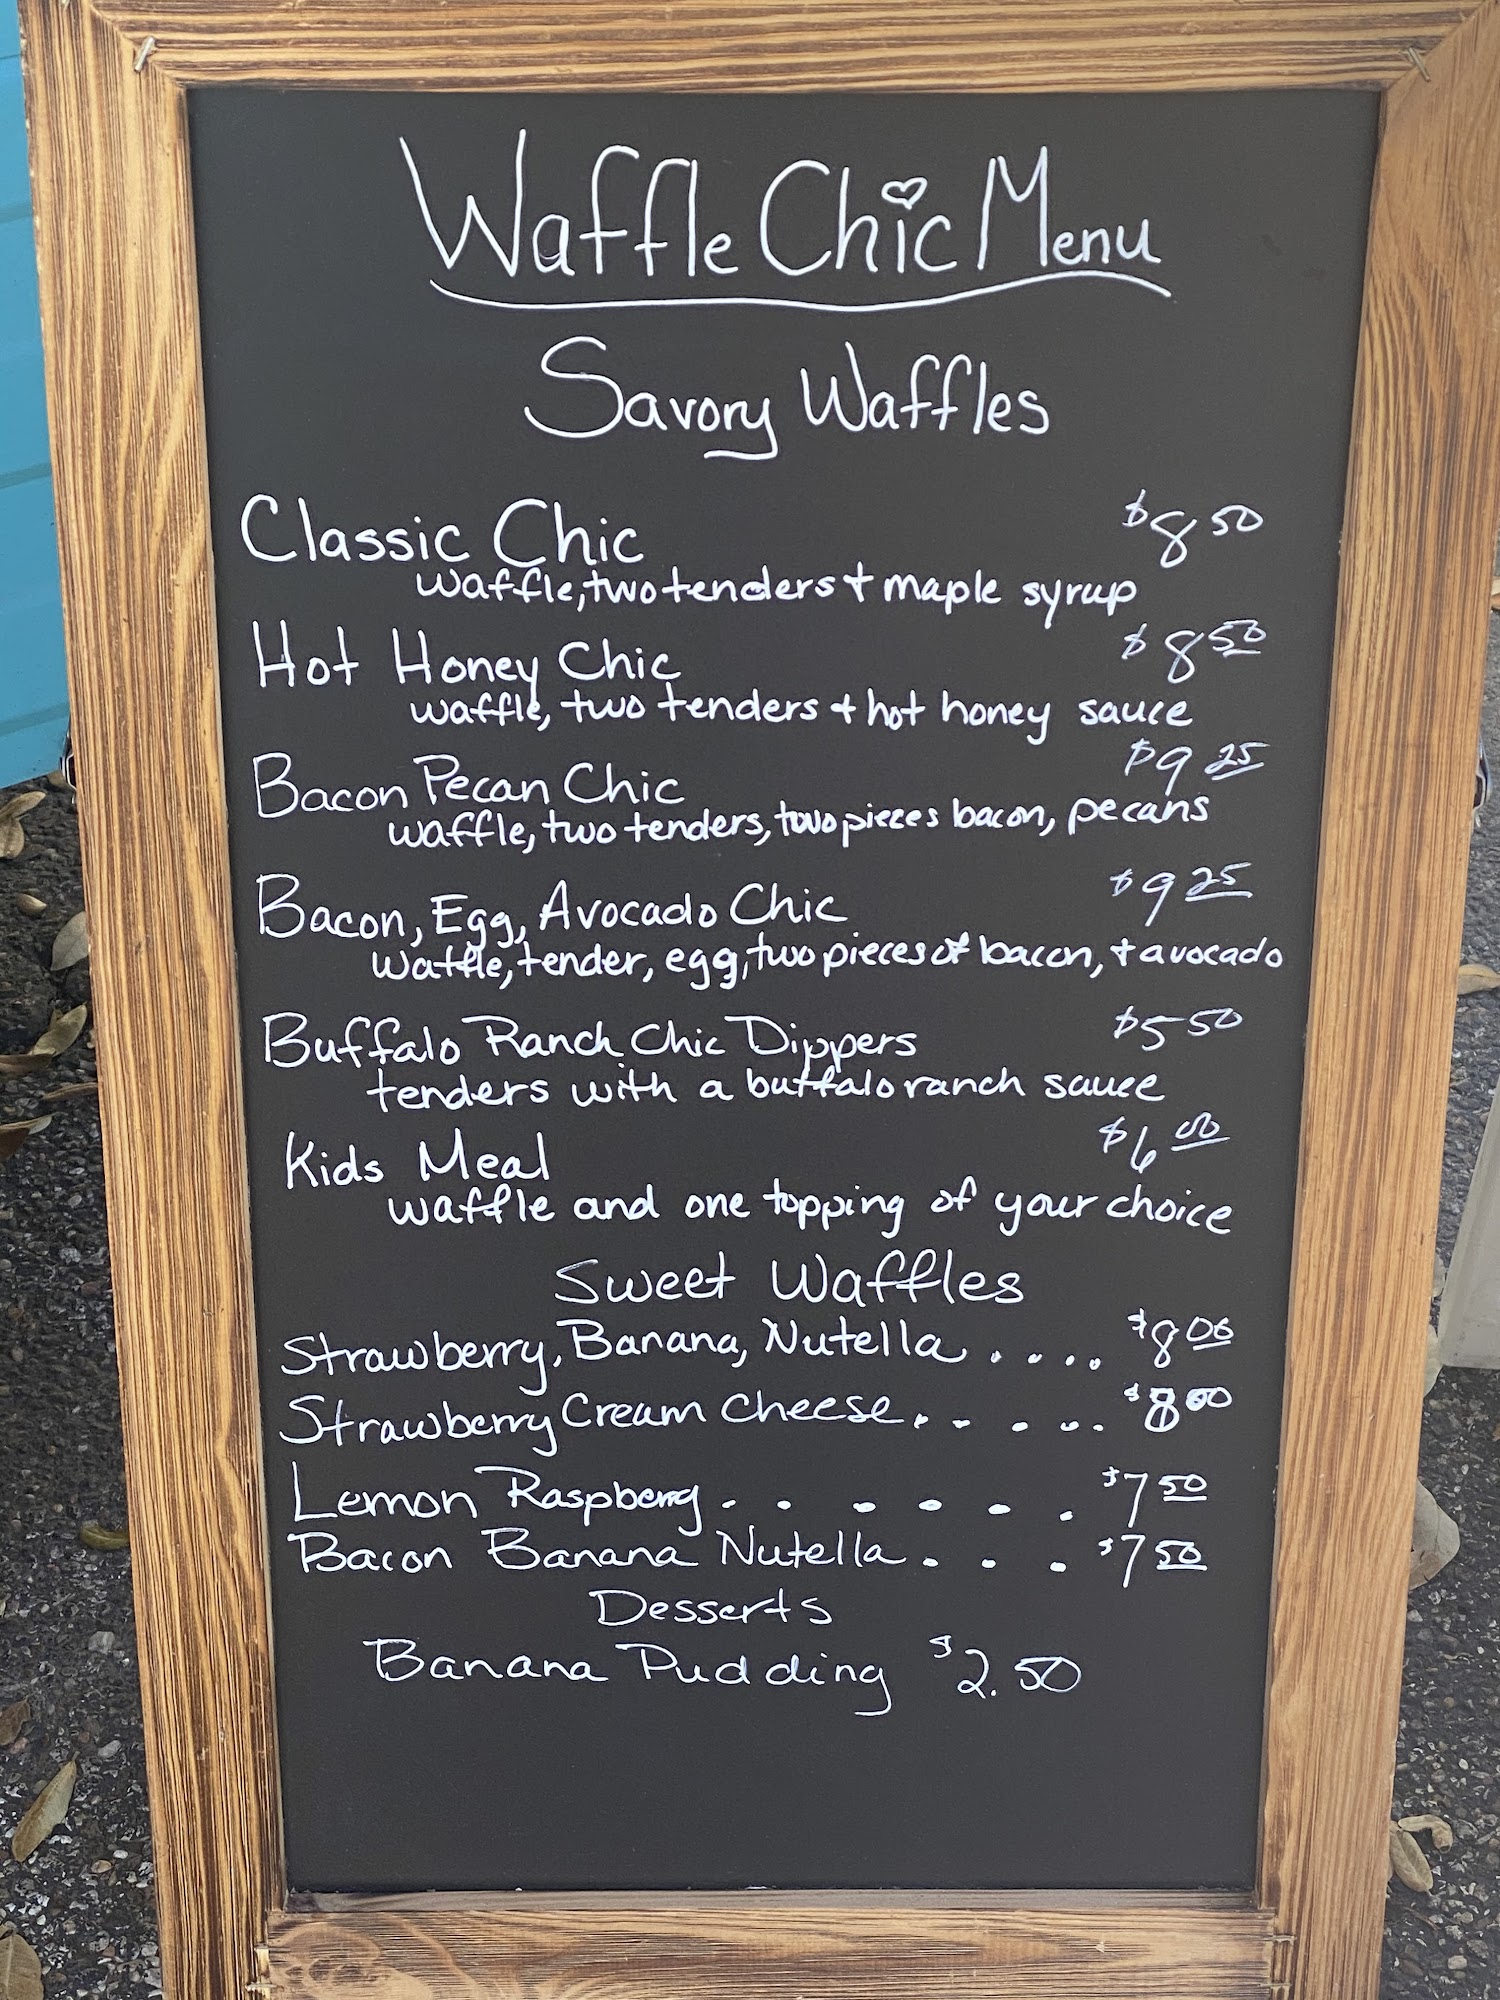 Waffle Chic Menu
Savory Waffles
Classic Chic $8 50
waffle, two tenders + maple syrup
Hot Honey Chic $8 50
waffle, two tenders + hot honey sauce
Bacon Pecan Chic $9 25
waffle, two tenders, two pieces bacon, pecans
Bacon, Egg, Avocado Chic $9 25
waffle, tender, egg, two pieces of bacon, + avocado
Buffalo Ranch Chic Dippers $5 50
tenders with a buffalo ranch sauce
Kids Meal $6 00
waffle and one topping of your choice
Sweet Waffles
Strawberry, Banana, Nutella .... $8 00
Strawberry Cream cheese..... $8 00
Lemon Raspberry...... $7 50
Bacon Banana Nutella... $7 50
Desserts
Banana Pudding $2.50